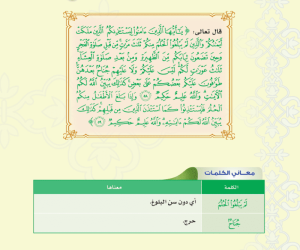 قال تعالى: ﴿ يَٰٓأَيُّهَا ٱلَّذِينَ ءَامَنُوا۟ لِيَسْتَـْٔذِنكُمُ ٱلَّذِينَ مَلَكَتْ
أَيْمَٰنُكُمْ وَٱلَّذِينَ لَمْ يَبْلُغُوا۟ ٱلْحُلُمَ مِنكُمْ ثَلَٰثَ مَرَّٰتٍ مِّن قَبْلِ صَلَوٰةِ ٱلْفَجْرِ
وَحِينَ تَضَعُونَ ثِيَابَكُم مِّنَ ٱلظَّهِيرَةِ وَمِنۢ بَعْدِ صَلَوٰةِ ٱلْعِشَآءِ
ثَلَٰثُ عَوْرَٰتٍ لَّكُمْ لَيْسَ عَلَيْكُمْ وَلَا عَلَيْهِمْ جُنَاحٌۢ بَعْدَهُنَّ
طَوَّٰفُونَ عَلَيْكُم بَعْضُكُمْ عَلَىٰ بَعْضٍ كَذَٰلِكَ يُبَيِّنُ ٱللَّهُ لَكُمُ
ٱلْءَايَٰتِ وَٱللَّهُ عَلِيمٌ حَكِيمٌ ﴿٥٨﴾ وَإِذَا بَلَغَ ٱلْأَطْفَٰلُ مِنكُمُ
ٱلْحُلُمَ فَلْيَسْتَـْٔذِنُوا۟ كَمَا ٱسْتَـْٔذَنَ ٱلَّذِينَ مِن قَبْلِهِمْ كَذَٰلِكَ
يُبَيِّنُ ٱللَّهُ لَكُمْ ءَايَٰتِهِۦ وَٱللَّهُ عَلِيمٌ حَكِيمٌ ﴿٥٩﴾
معاني الكلمات
الكلمة معناها
لَمْ يَبْلُغُوا۟ ٱلْحُلُمَ أي دون سن البلوغ.
جُنَاحٌ حرج.